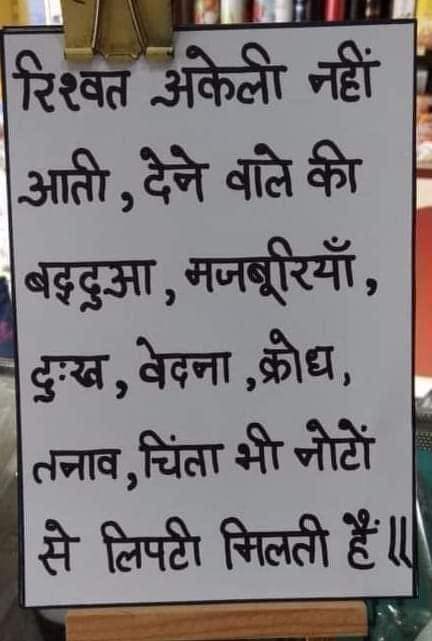 रिश्वत अकेली नहीं
आती, देने वाले की
बद्दुआ, मजबूरियाँ,
दुःख, वेदना, क्रोध,
तनाव, चिंता भी नोटों
से लिपटी मिलती हैं॥